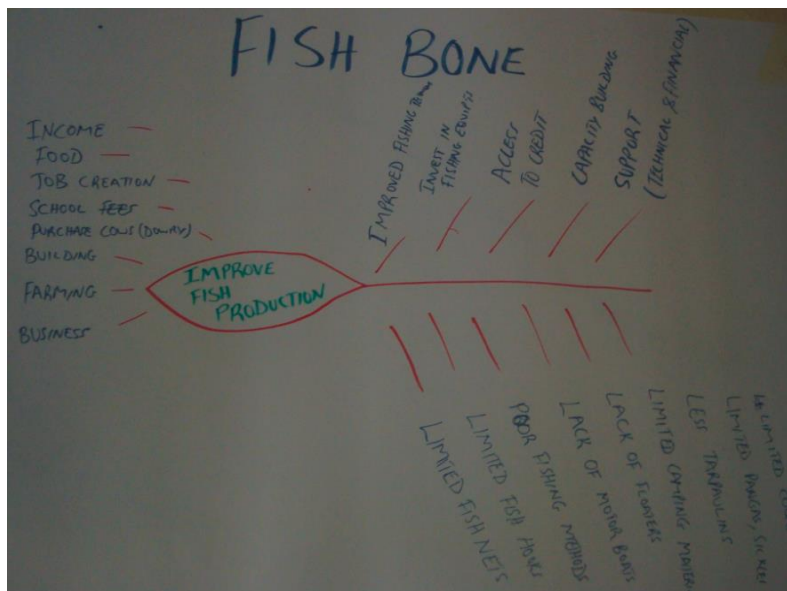 FISH BONE
INCOME
FOOD
JOB CREATION
SCHOOL FEES
PURCHASE COWS (DOWRY)
BUILDING
FARMING
BUSINESS
IMPROVE
FISH
PRODUCTION
IMPROVED FISHING
INVEST IN
FISHING EQUIPT
ACCESS
TO CREDIT
CAPACITY BUILDING
SUPPORT
(TECHNICAL & FINANCIAL)
LIMITED FISH NETS
LIMITED FISH HOOKS
POOR FISHING METHODS
LACK OF MOTOR BOATS
LACK OF FLOATERS
LIMITED CAMPING
LESS TARPAULINS
LIMITED PANGAS,
LIMITED